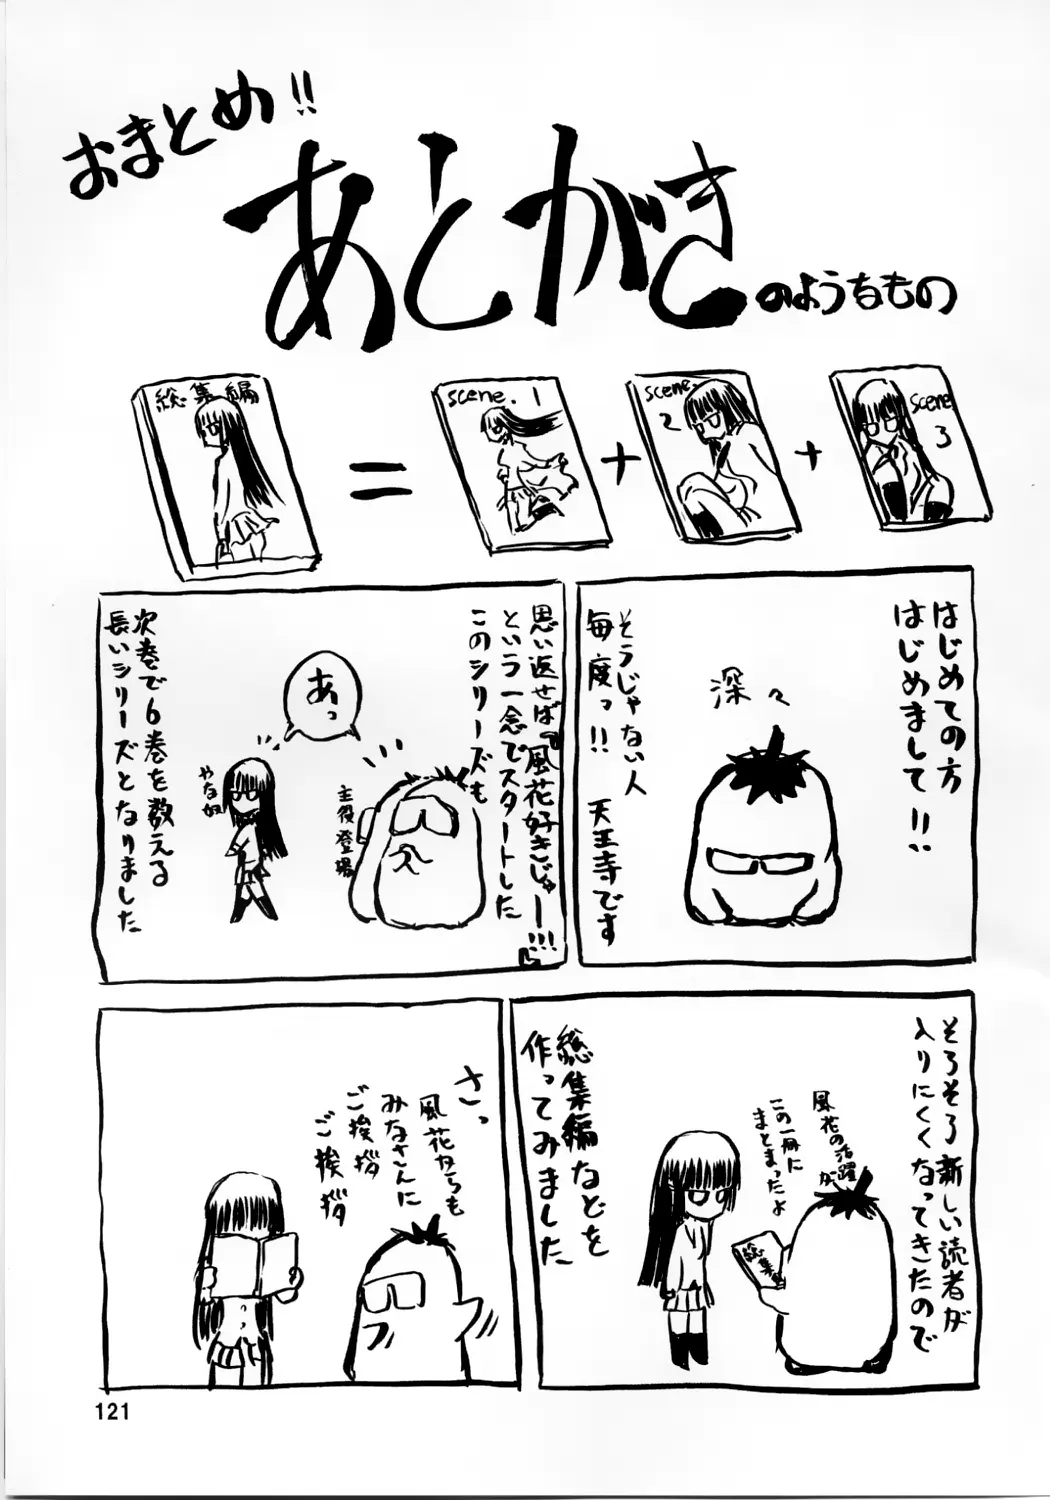 おまとめ!!
あとがき
のようなもの
総集編
=
scene. 1
+
scene. 2
+
scene. 3
はじめての方
はじめまして!!
深々
そうじゃない人
毎度っ!!
天王寺です
思い返せば『風花好きじゃー!!!』
という一念でスタートした
このシリーズも
あっ
主役登場
やなか
次巻で6巻を数える
長いシリーズとなりました
そろそろ新しい読者が
入りにくくなってきたので
風花の活躍が
この一冊に
まとまったよ
総集編
総集編などを
作ってみました
さっ
風花からも
みなさんに
ご挨拶
ご挨拶
121